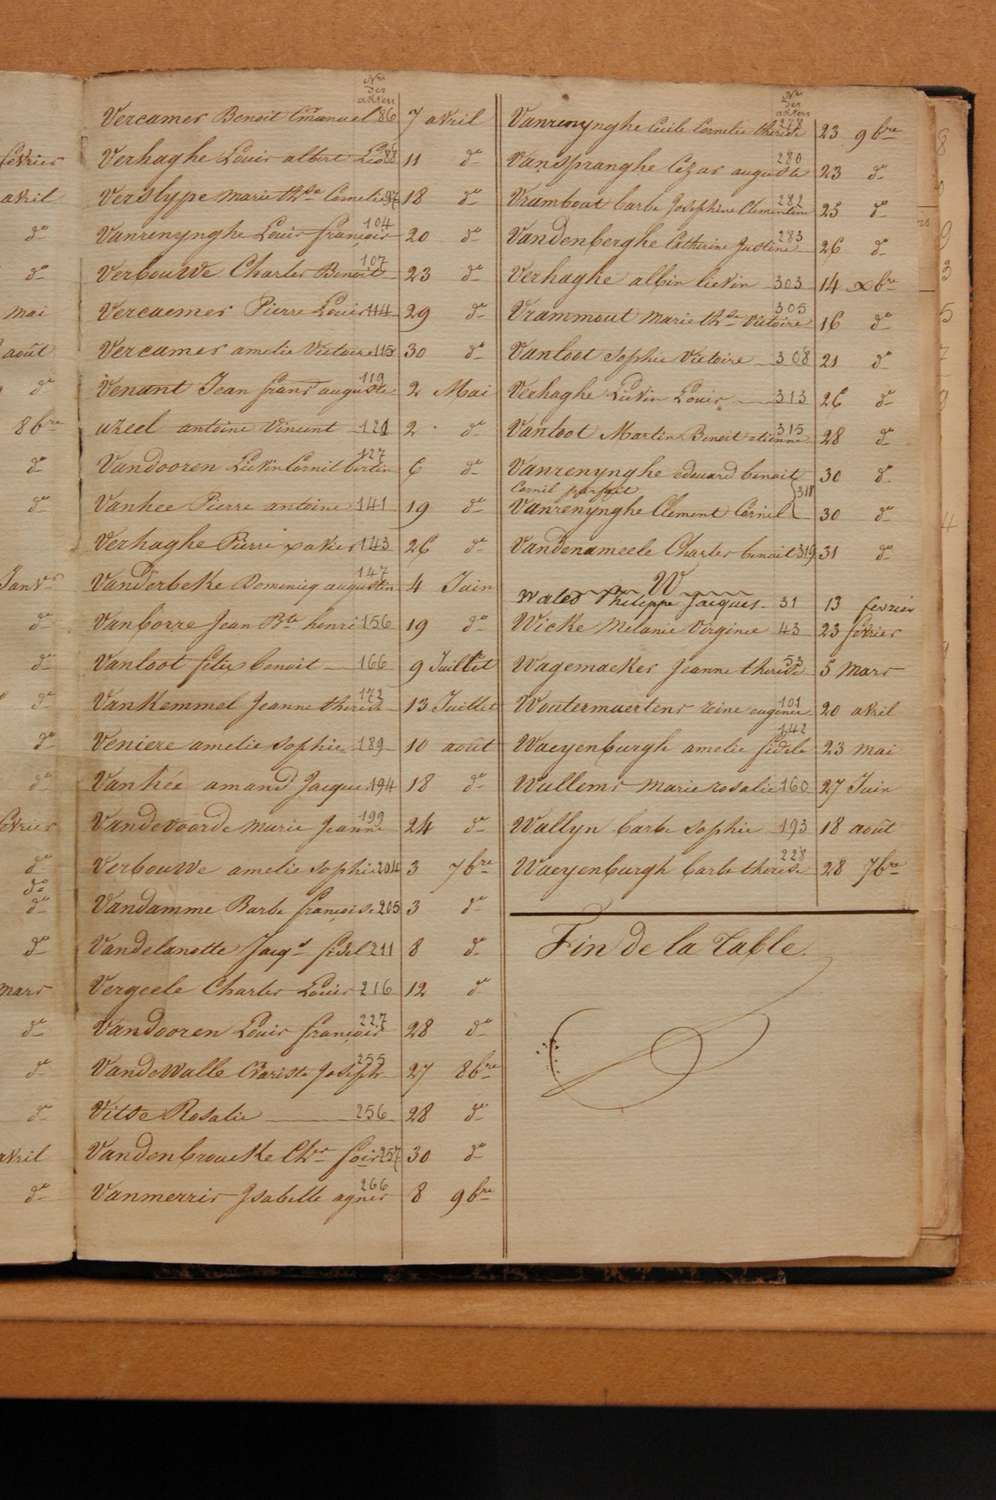 Nos des akten
Vercamer Benoit Emanuel 86 7 avril
Verhaghe Louis albert Léo 88 11 do
Verslype Marie thse Cornelie 18 do
Vanrenynghe Louis françois 104 20 do
Verbouwe Charles Benoit 107 23 do
Vercaemer Pierre Louis 114 29 do
Vercamer amelie Victoire 115 30 do
Venant Jean frans auguste 119 2 Mai
uzeel antoine Vincent 121 2 do
Vandooren Lievin Cornil bertin 127 6 do
Vanhee Pierre antoine 141 19 do
Verhaghe Pierre xavier 143 26 do
Vanderbeke Dominicq augustin 147 4 Juin
Vanborre Jean Bte henri 156 19 do
Vanloot felix benoit 166 9 Juillet
Vankemmel Jeanne therese 172 13 Juillet
Veniere amelie sophie 189 10 août
Vanhée amand Jacques 194 18 do
Vandevoorde marie Jeanne 199 24 do
Verbouwe amelie sophie 204 3 7bre
Vandamme Barbe françoise 205 3 do
Vandelanotte Jacqs fidel 211 8 do
Vergeele Charles Louis 216 12 do
Vandooren Louis françois 227 28 do
Vandewalle Chariste Joseph 255 27 8bre
Vitse Rosalie 256 28 do
Vandenbroucke Chs 257 30 do
Vanmerris Isabelle agnes 266 8 9bre
Nos des akten
Vanrenynghe Cecile Cornelie therese 278 23 9bre
Vanspranghe Cézar auguste 280 23 do
Vrambout barbe Josephine Clementine 282 25 do
Vandenberghe Catherine Justine 283 26 do
Verhaghe albin lievin 303 14 xbre
Vrammout marie thse Victoire 305 16 do
Vanloot sophie Victoire 308 21 do
Verhaghe Lievin Louis 313 26 do
Vanloot Martin Benoit etienne 315 28 do
Vanrenynghe edouard benoit 30 do
Cornil parfait 318
Vanrenynghe Clement Cornil 30 do
Vandenameele Charles benoit 319 31 do
W
Wales Philippe Jacques 31 13 fevrier
Wicke Melanie Virginie 43 23 février
Wagemacker Jeanne therese 53 5 mars
Woutermaertens reine eugenie 101 20 avril
Waeyenburgh amelie fidele 142 23 mai
Wullems marie rosalie 160 27 Juin
Wallyn barbe sophie 193 18 août
Waeyenburgh barbe therese 228 28 7bre
Fin de la table.